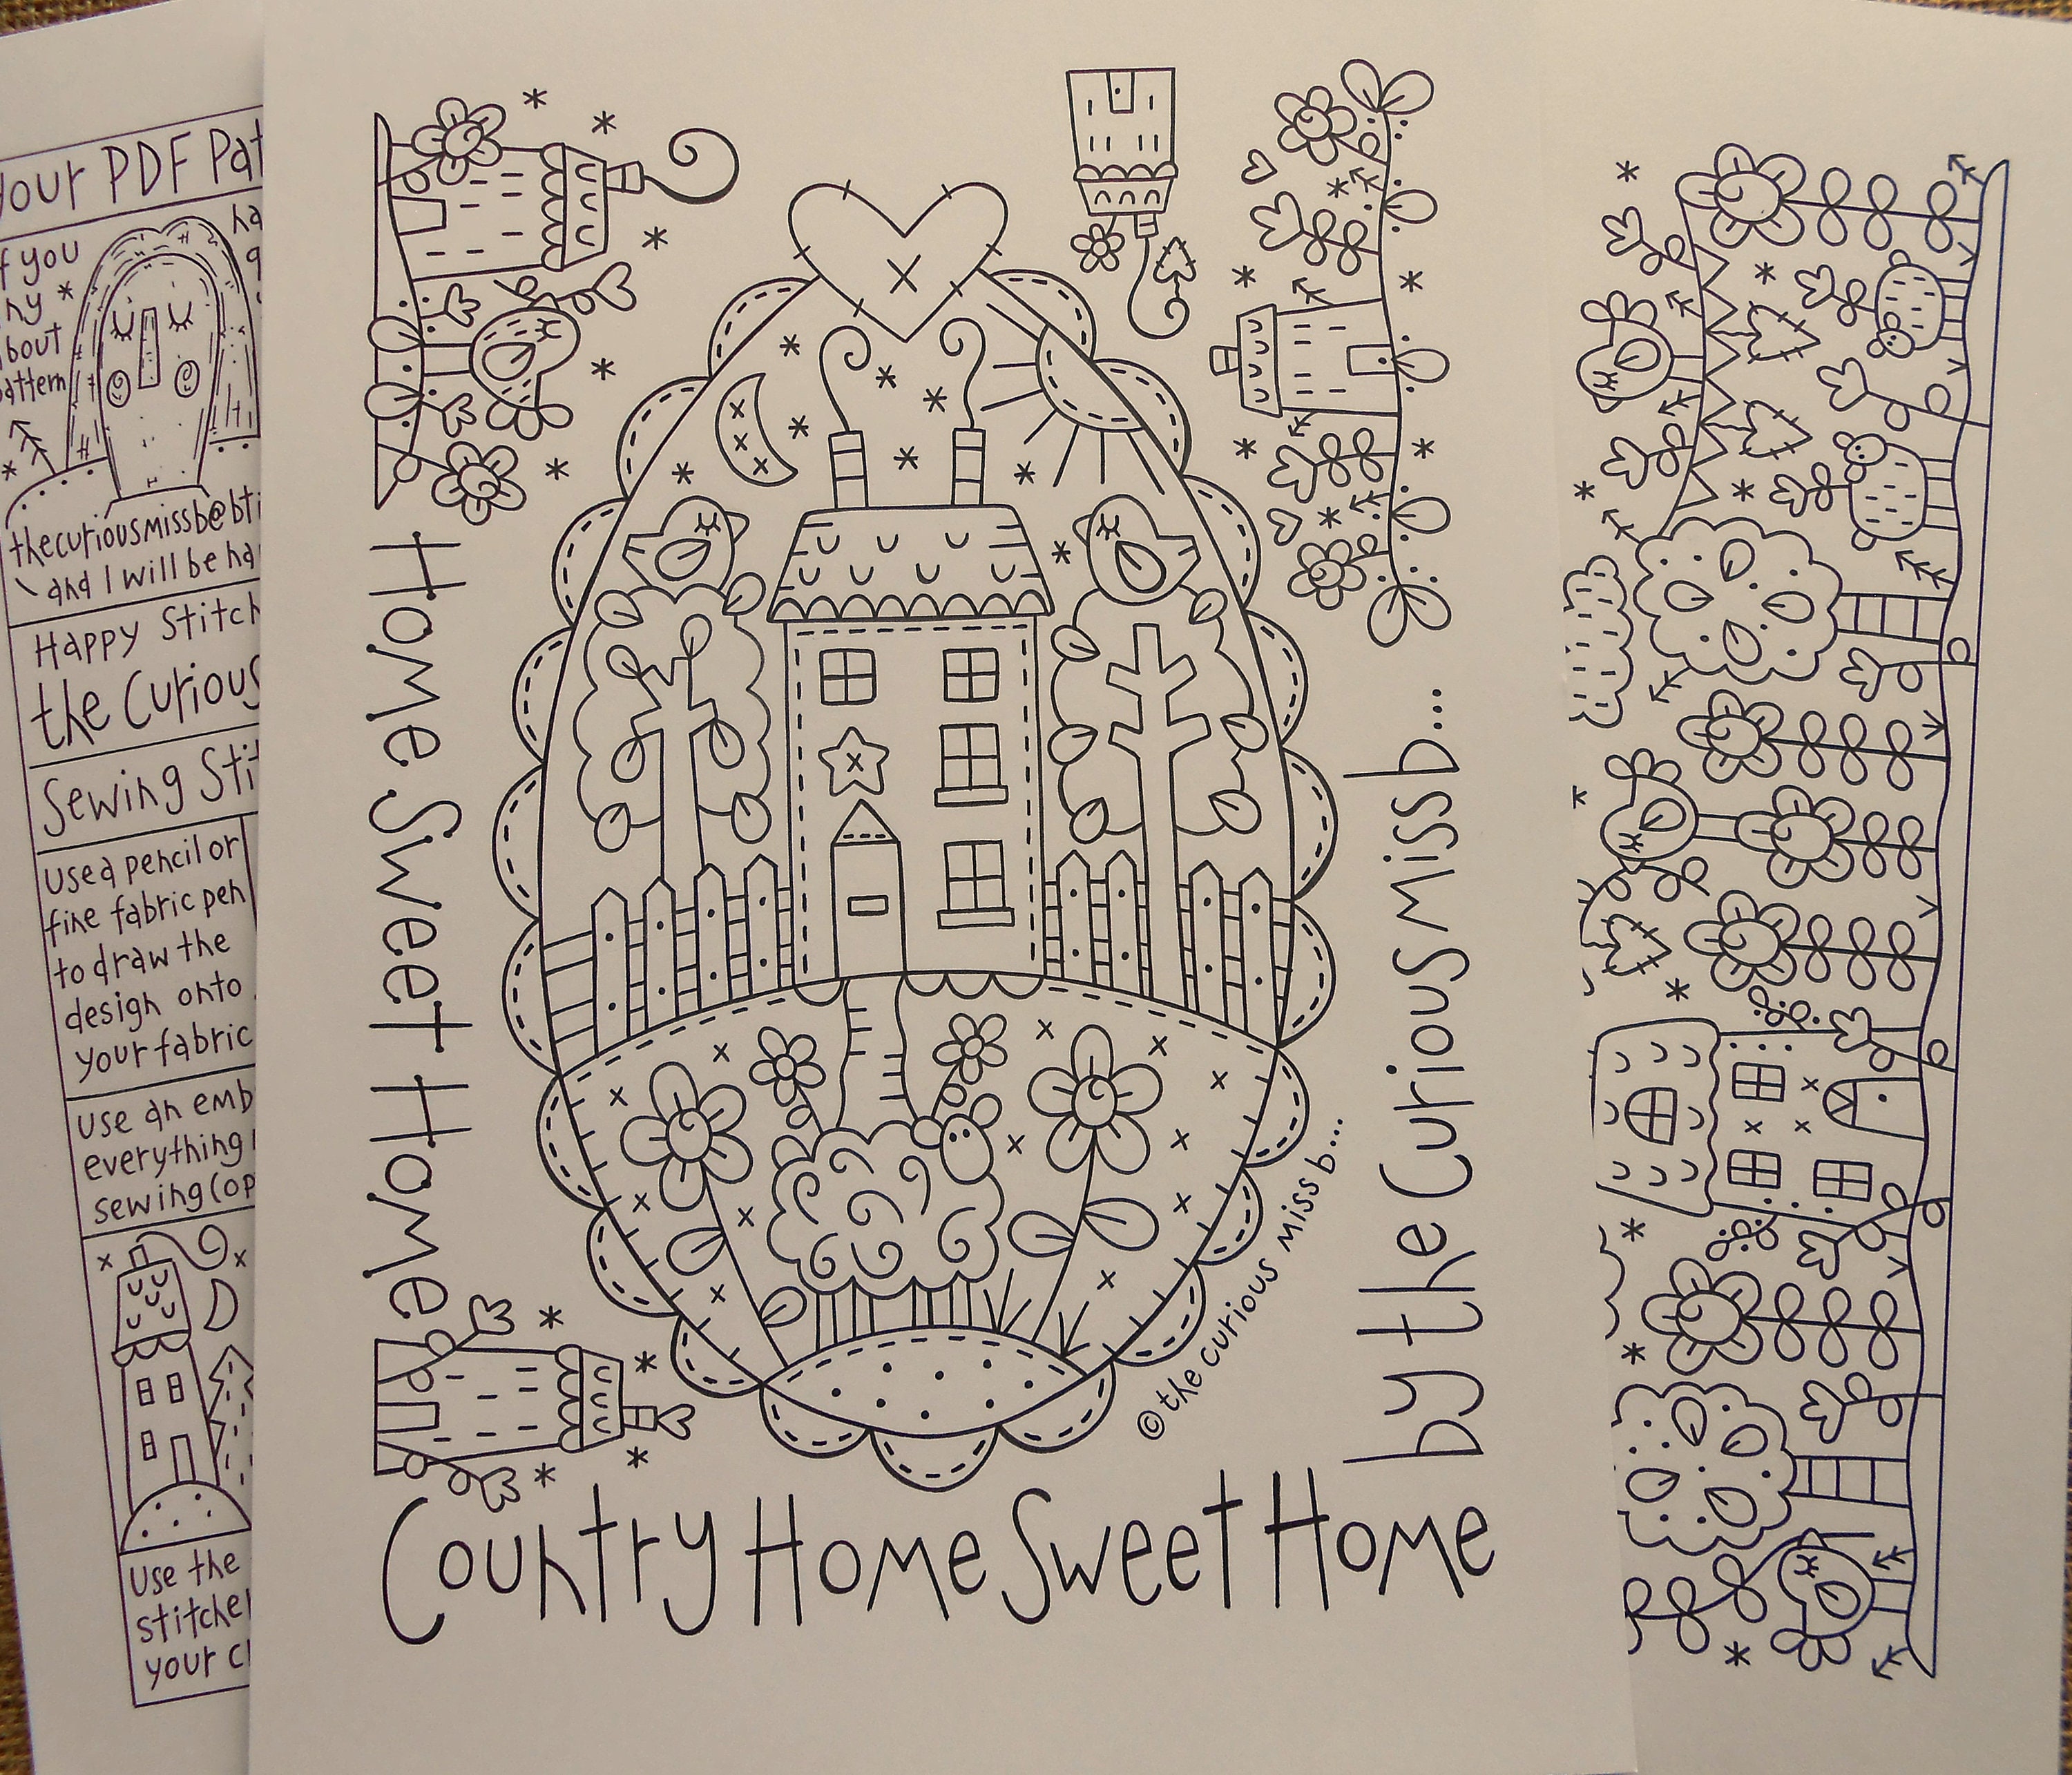 your PDF
if you
about
pattern
thecuriousmissb@bti
and I will be
Happy
the Curious
Sewing
Use a pencil or
fine fabric pen
to draw the
design onto
your fabric
Use an
everything
sewing
Use the
your
Home Sweet Home
by the Curious Miss b...
© the curious miss b...
Country Home Sweet Home